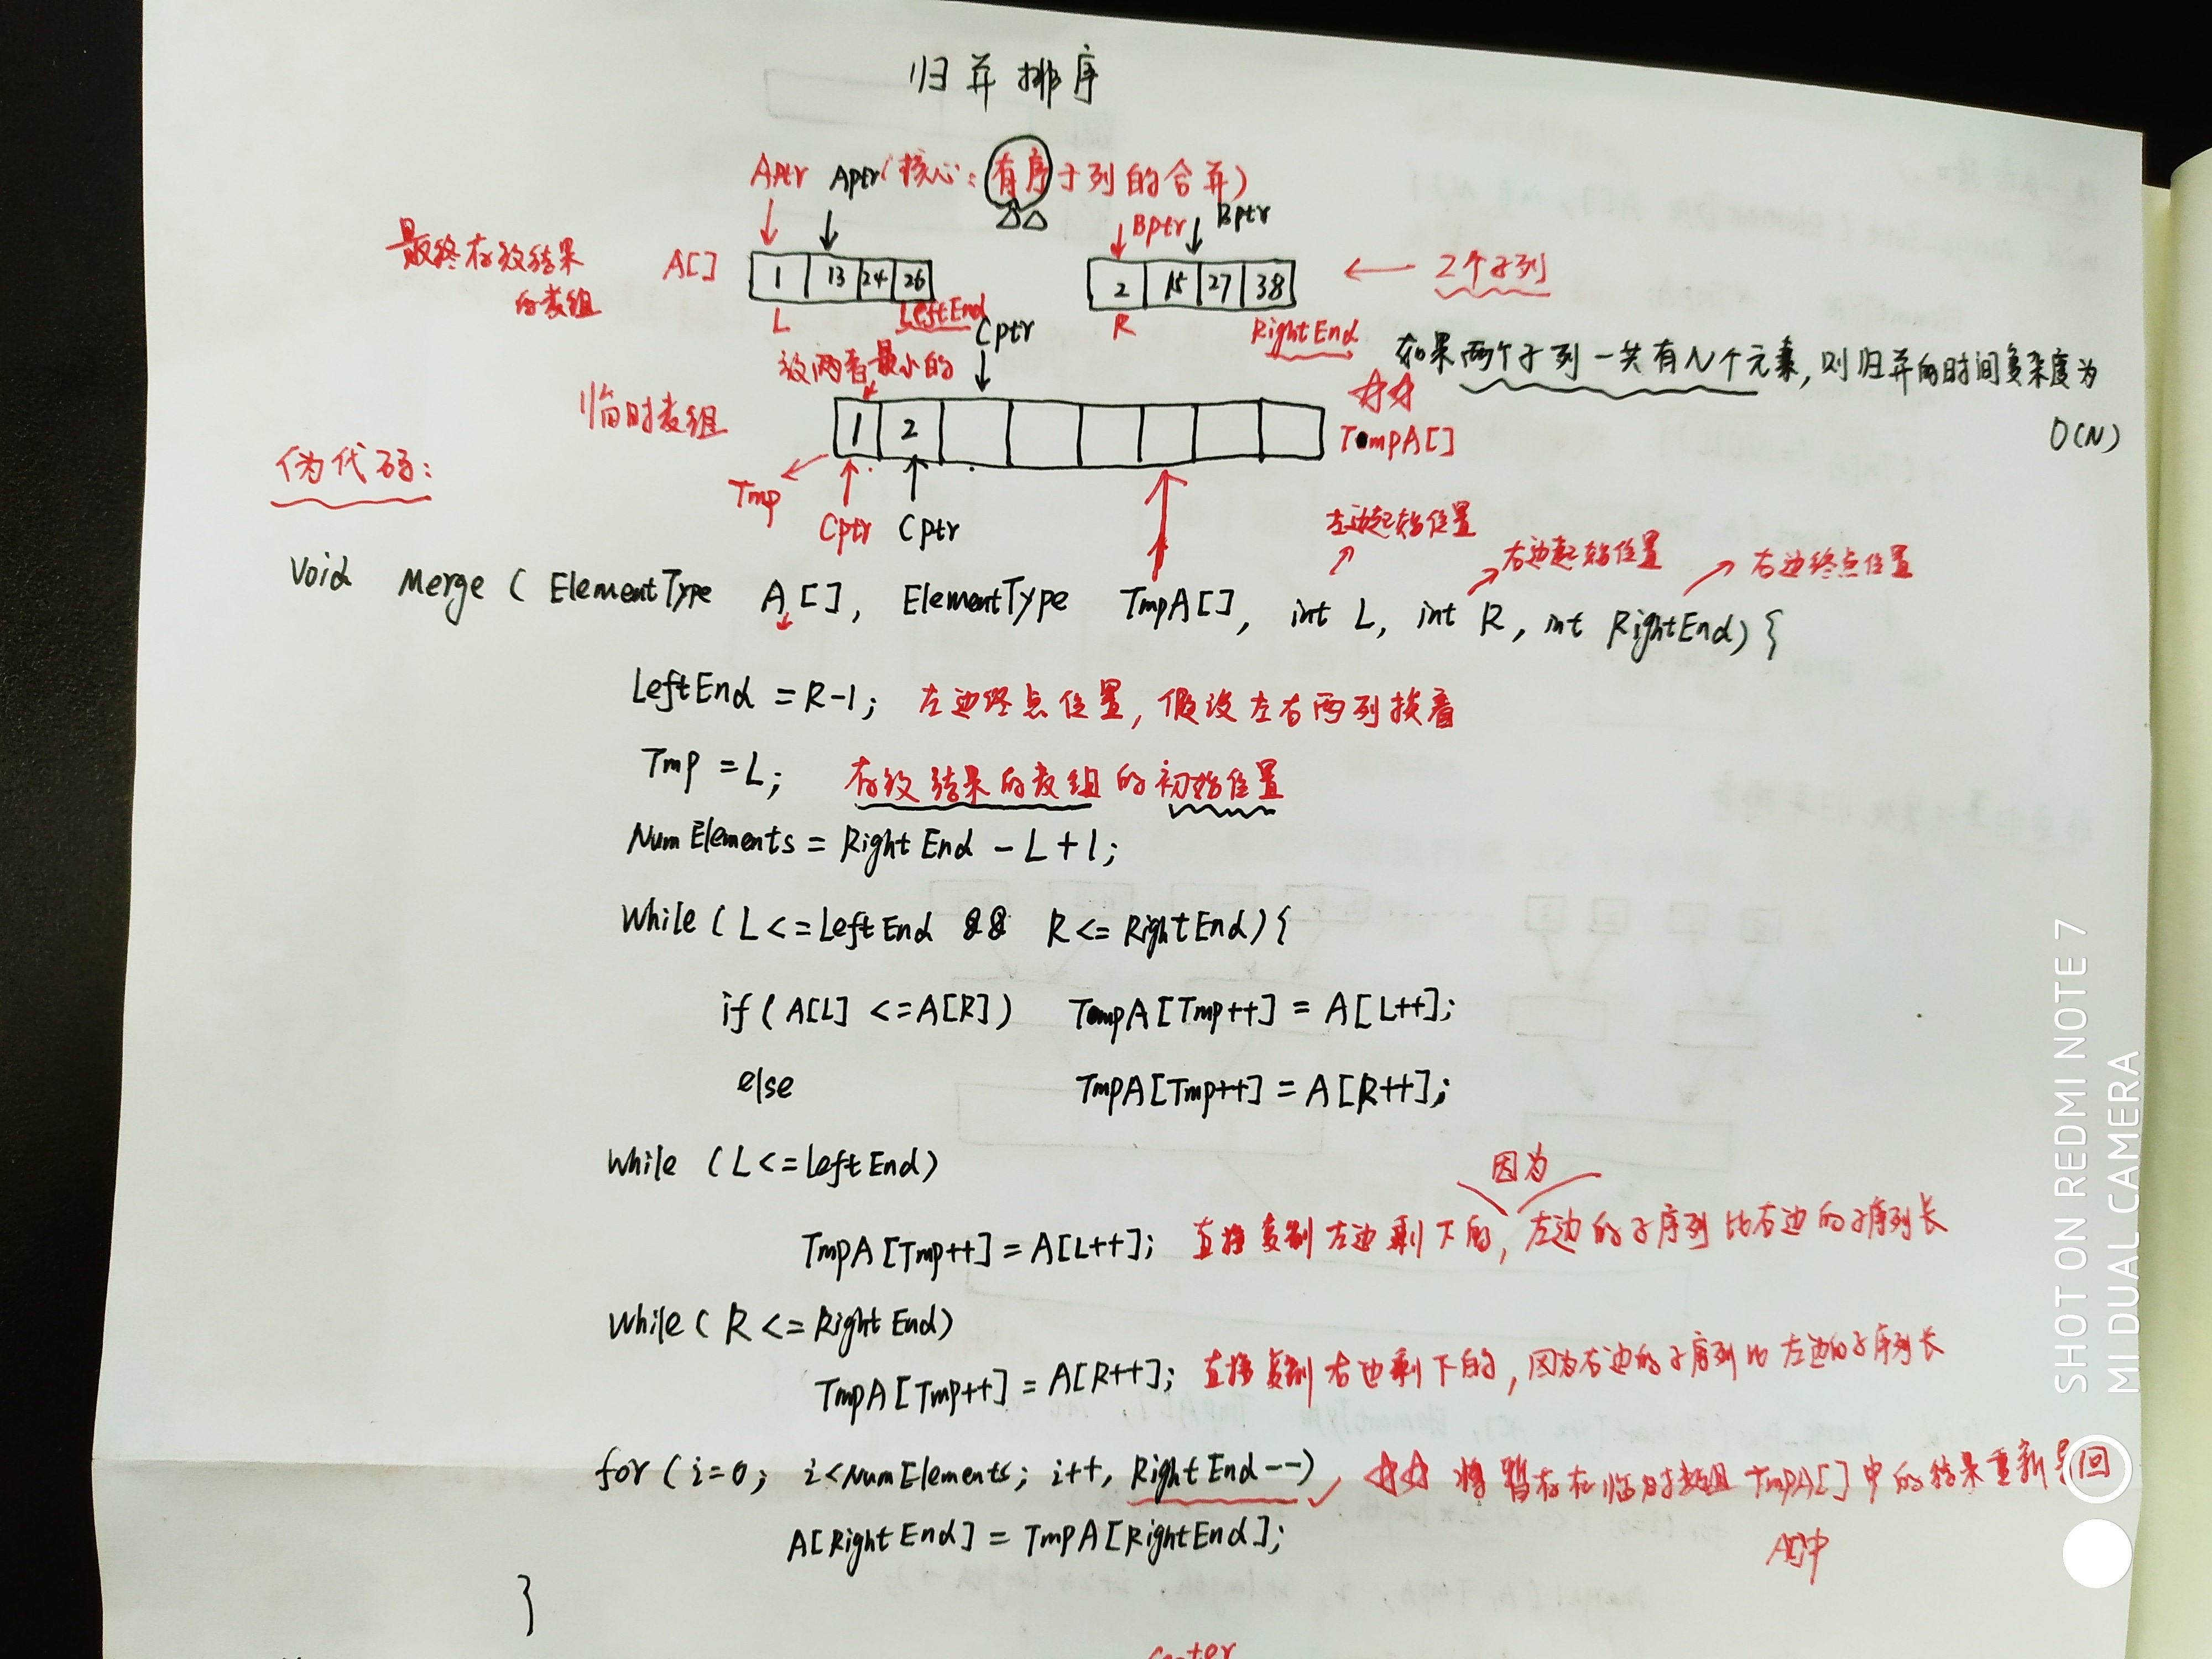 归并排序
Aptr Aptr (核心:有序子列的合并)
Bptr Bptr
最终存放结果
的数组
A[] 1 13 24 26 2 15 27 38 2个子列
L LeftEnd R RightEnd
Cptr
放两者最小的
如果两个子列一共有N个元素,则归并的时间复杂度为
O(N)
临时数组 1 2 TmpA[]
伪代码:
Tmp Cptr Cptr
左边起始位置 右边起始位置 右边终点位置
Void Merge ( ElementType A[], ElementType TmpA[], int L, int R, int RightEnd) {
LeftEnd = R-1; 左边终点位置,假设左右两列挨着
Tmp = L; 存放结果的数组的初始位置
NumElements = RightEnd - L + 1;
While ( L <= LeftEnd && R <= RightEnd) {
if ( A[L] <= A[R] ) TmpA[Tmp++] = A[L++];
else TmpA[Tmp++] = A[R++];
While (L <= LeftEnd)
因为
TmpA[Tmp++] = A[L++]; 直接复制左边剩下的,左边的子序列比右边的子序列长
While ( R <= RightEnd)
TmpA[Tmp++] = A[R++]; 直接复制右边剩下的,因为右边的子序列比左边的子序列长
for ( i=0; i<NumElements; i++, RightEnd--) 将暂存在临时数组TmpA[]中的结果重新导回
A[RightEnd] = TmpA[RightEnd]; A[]中
}
SHOT ON REDMI NOTE 7
MI DUAL CAMERA